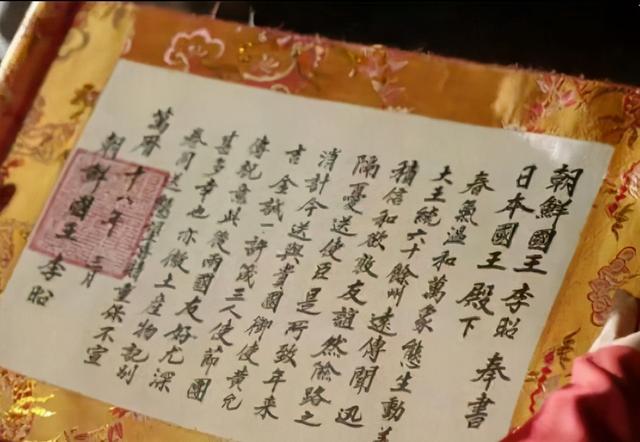 朝鮮國王 李昭 奉書
日本國王 殿下
春氣溫和萬象態生動美
大王統六十餘州遠傳聞迅
積信和欲敦友誼然險路之
隔憂送使臣是所致年來
消計今送與貴國御使黃允
吉金誠一許筬三人使節團
傳說意此後兩國友好尤深
甚多幸也亦微土產物記別
同送珍重保不宣
萬曆十八年 三月
朝鮮國王 李昭